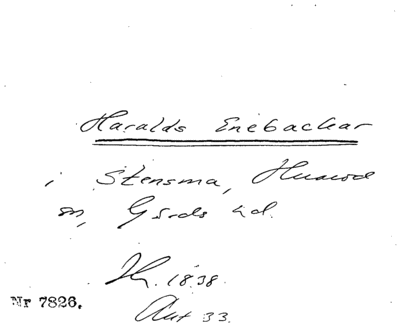 Haralds Enebackar
i Stensma, Huaröd
sn, Gärds hd.
Th. 1838.
Nr 7826.
Akt 33.